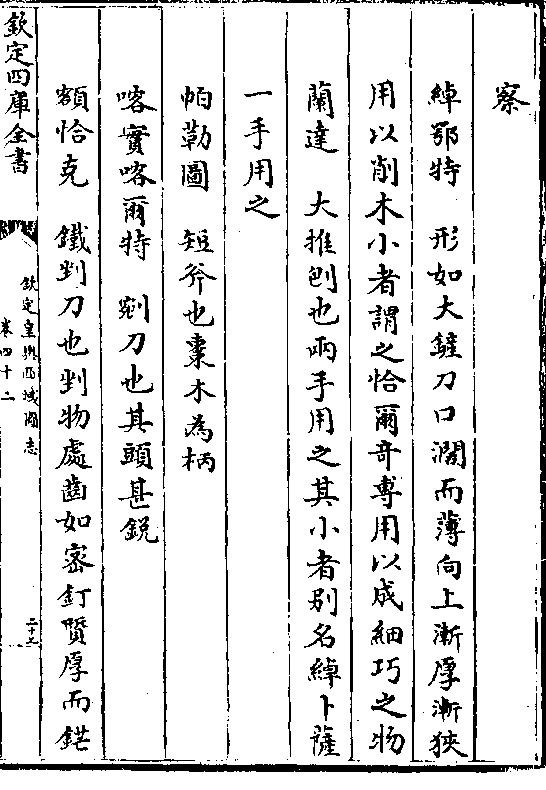 察
綽鄂特　形如大鏟刀口濶而薄向上漸厚漸狹
用以削木小者謂之恰爾竒專用以成細巧之物
蘭達　大推刨也兩手用之其小者别名綽卜薩
一手用之
帕勒圖　短斧也棗木為柄
喀實喀爾特　剜刀也其頭甚銳
額恰克　鐵剉刀也剉物處齒如宻釘質厚而鋩
欽定四庫全書
欽定皇輿西域圖志
卷四十二